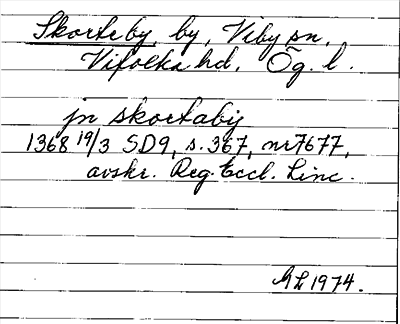 Skorteby, by, Viby sn,
Vifolka hd, Ög. l.
jn skortaby
1368 19/3 SD9, s. 367, nr 7677,
avskr. Reg. Eccl. Linc.
1974.